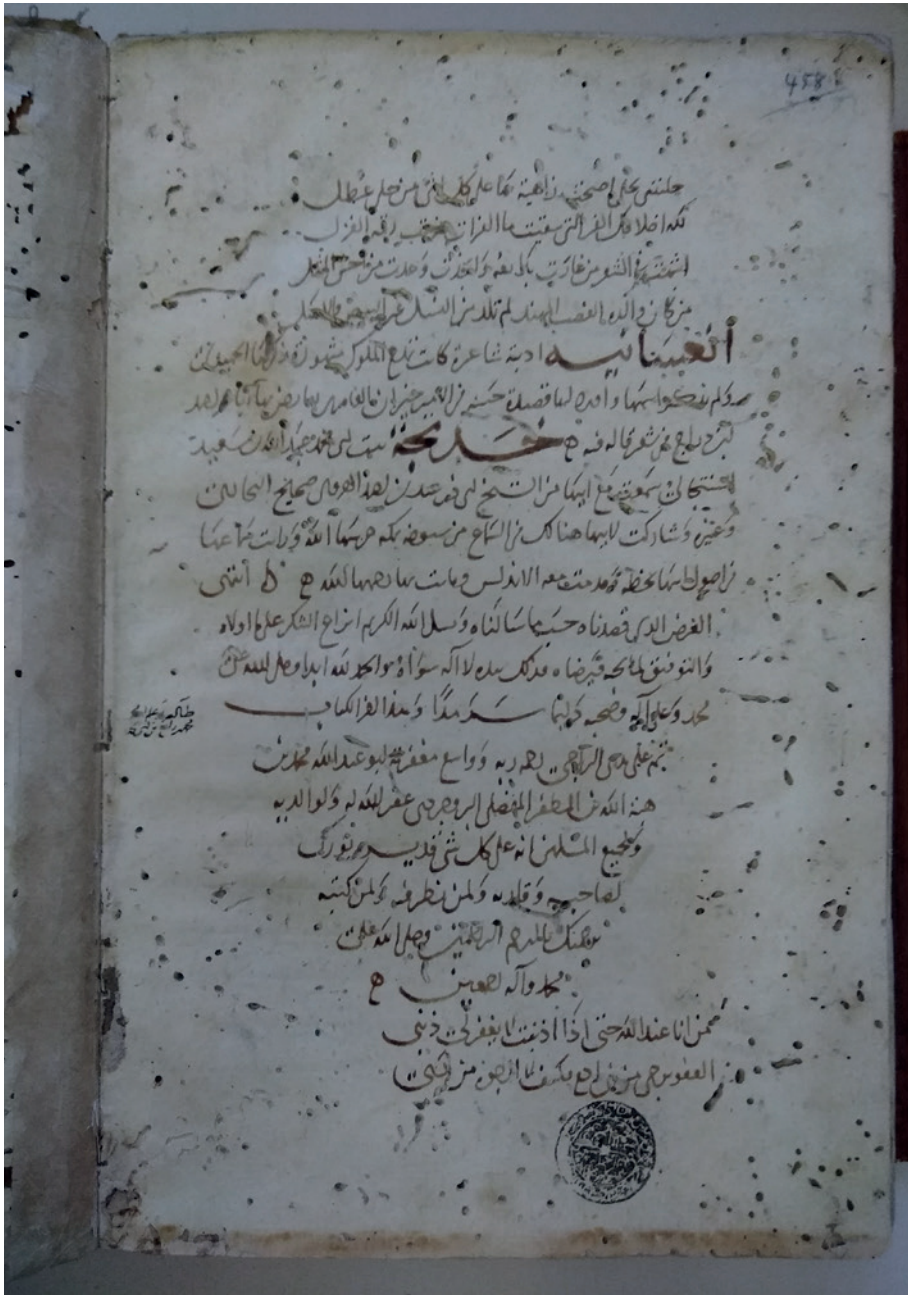 458
حليتني بحلى اصبحت زاهية بها على كل انثى من حلى عطل
لله اخلاقك الغر التي سقيت ماء الفرات فرقت رقة الغزل
اشبهت في الشعر من غارت بدائعه وانجدت وغدت من احسن المثل
من كان والده العضب المهند لم تلد من النسل غير البيض والاسل
الغسانية اديبة شاعرة كانت تمدح الملوك مشهورة ذكرها الحميدي
ولم يذكر اسمها وانشد لها قصيدة حسنة في الامير خيران العامري تعارض بها ابا عمر احمد
بن دراج في شعر قاله فيه خديجة بنت ابي محمد عبد الله بن سعيد
الشنتجالي سمعت مع ابيها من الشيخ ابي ذر عبد بن احمد الهروي صحيح البخاري
وغيره وشاركت لابيها هنالك في السماع من شيوخه بمكة حرسها الله ورايت سماعها
في اصول ابيها بخطه وقدمت معه الاندلس وماتت بها رحمها الله انتهى
الغرض الذي قصدناه حسب ما سالناه ونسل الله الكريم ايزاع الشكر على ما اولاه
والتوفيق لما يحبه ويرضاه فذلك بيده لا اله سواه والحمد لله ابدا وصلى الله على
محمد وعلى آله وصحبه سرمدا وهذا اخر الكتاب
تم على يدي الراجي رحمة ربه وواسع مغفرته ابو عبد الله محمد بن
هبة الله بن المظفر المفضلي البروجردي غفر الله له ولوالديه
ولجميع المسلمين انه على كل شي قدير
لصاحبه وقاريه ولمن نظر فيه ولمن كتبه
برحمتك يا ارحم الراحمين وصلى الله على
محمد وآله اجمعين
فمن انا عند الله حتى اذا اذنبت لا يغفر لي ذنبي
العفو يرجى من بني ادم فكيف لا ارجوه من ربي